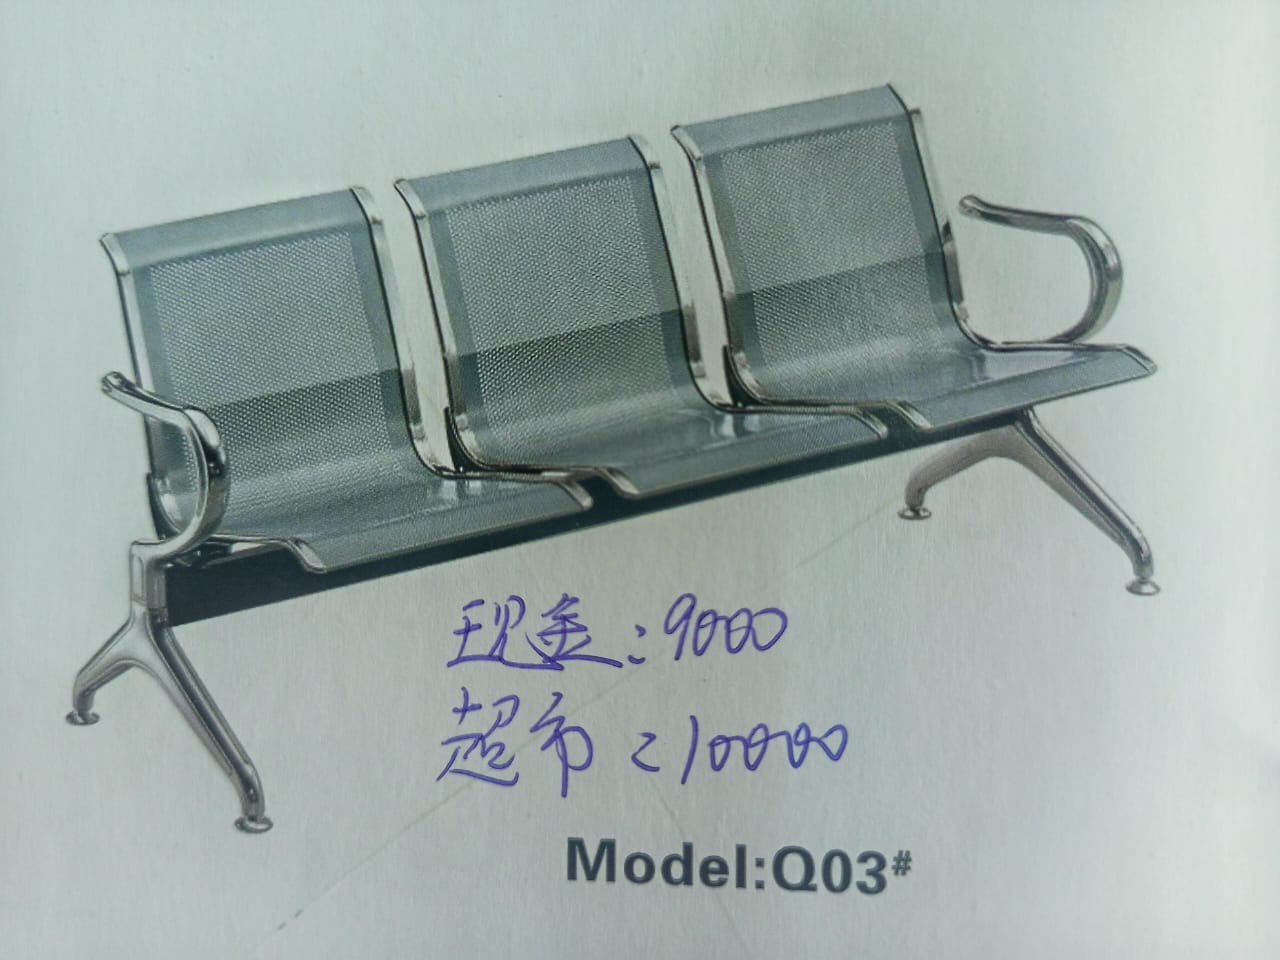 现金:9000
超市:10000
Model:Q03#